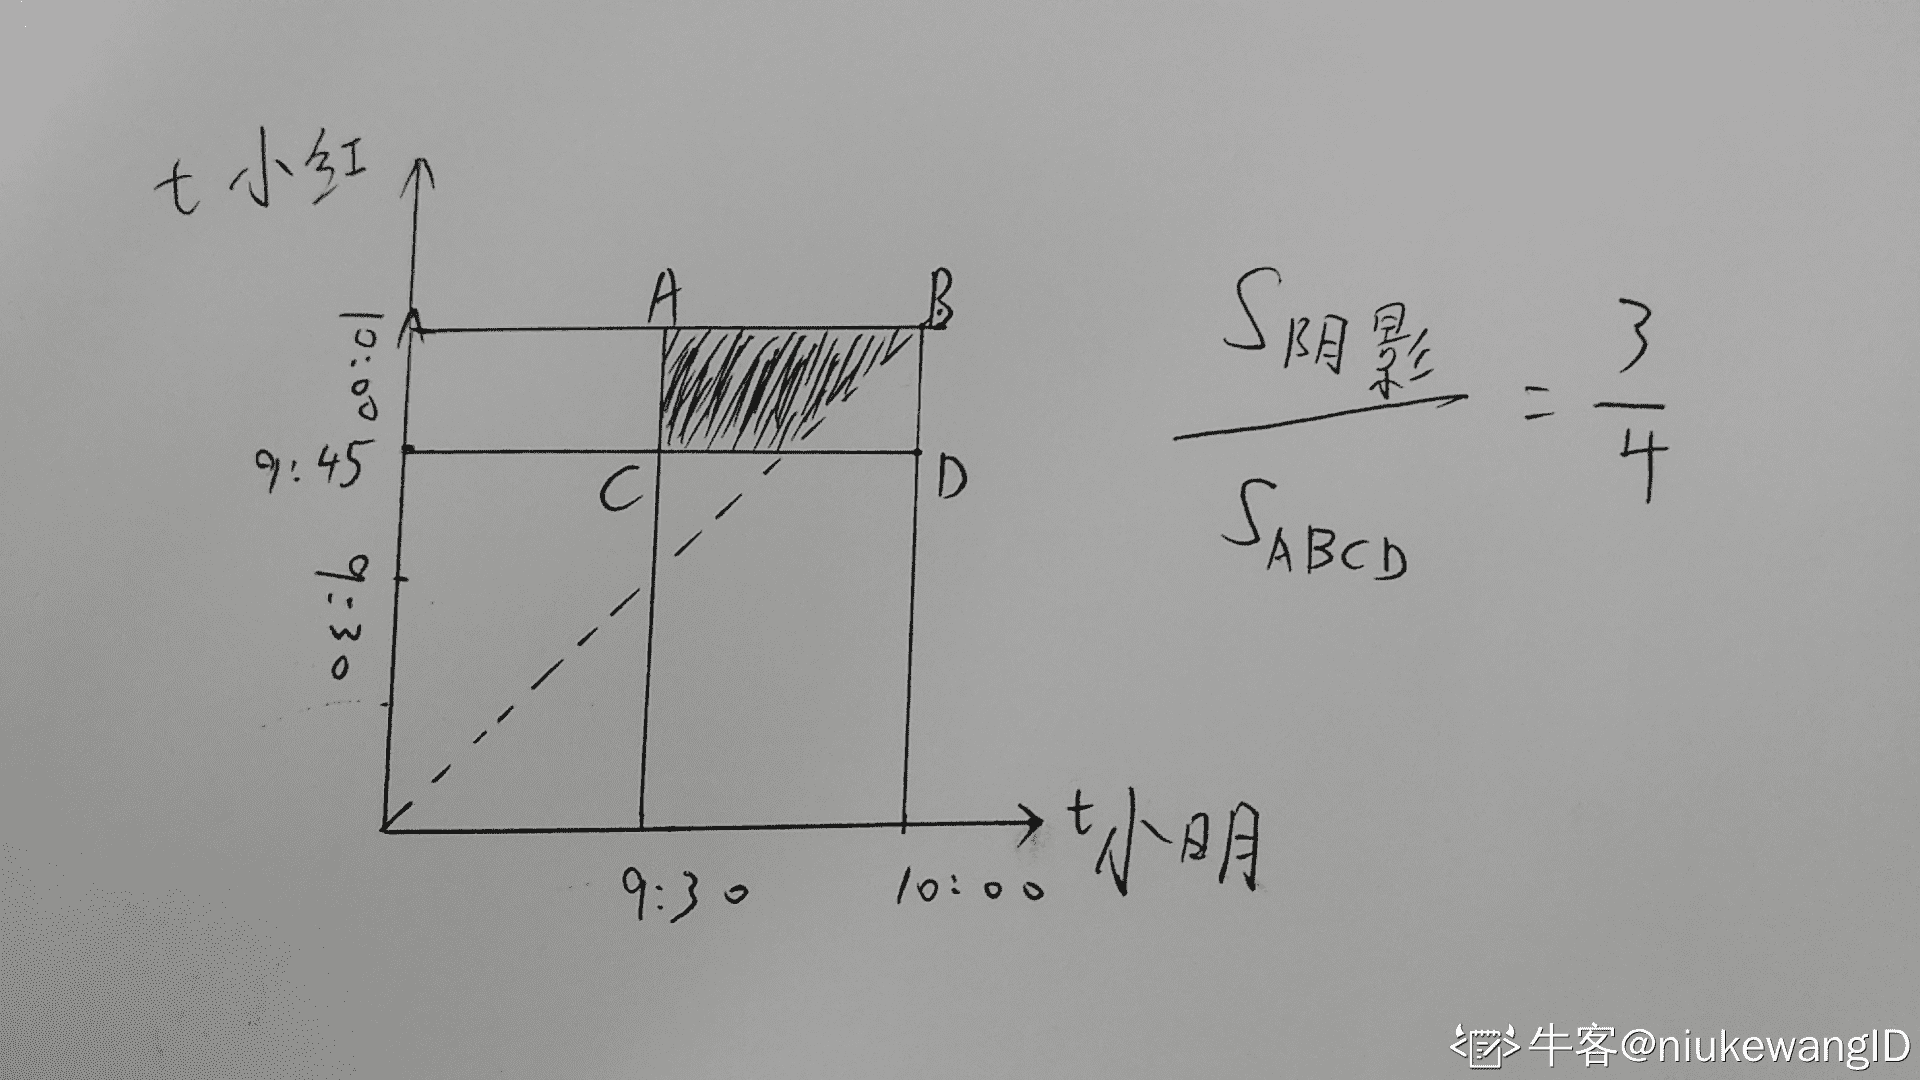 t 小红
A
B
10:00
9:45
C
D
9:30
9:30
10:00
t 小明
S阴影
SABCD
=
3
4
牛客@niukewangID